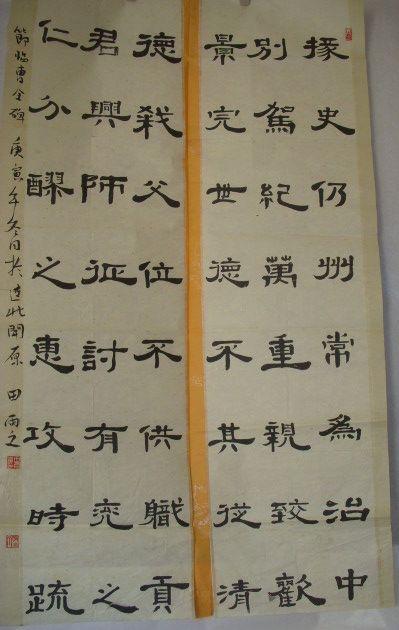 掾史仍州常為治中
別駕紀萬重親致歡
景完世德不其從清
德弒父位不供職貢
君興師征討有兖之
仁分醪之惠攻時疏
節臨曹全碑 庚寅年冬日於遼北開原 田雨之